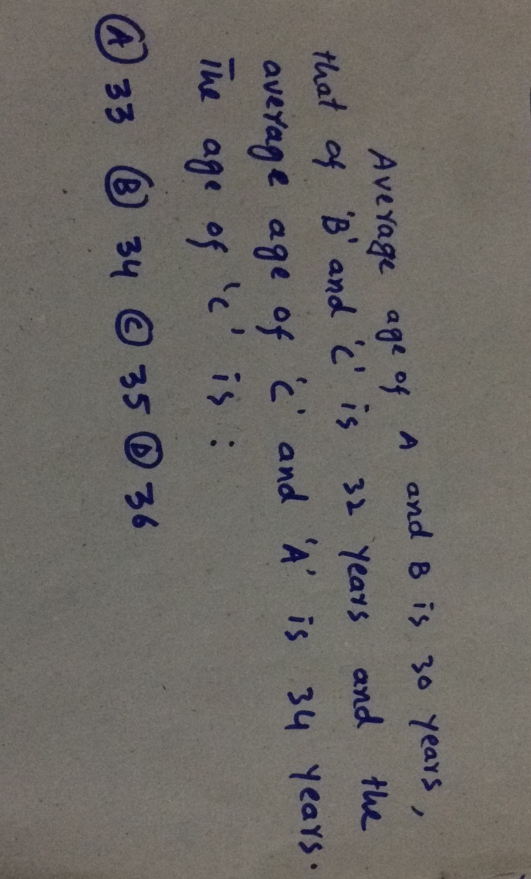 Average age of A and B is 30 years,
that of 'B' and 'C' is 32 years and the
average age of 'C' and 'A' is 34 years.
The age of 'C' is :
Ⓐ 33 Ⓑ 34 Ⓒ 35 Ⓓ 36